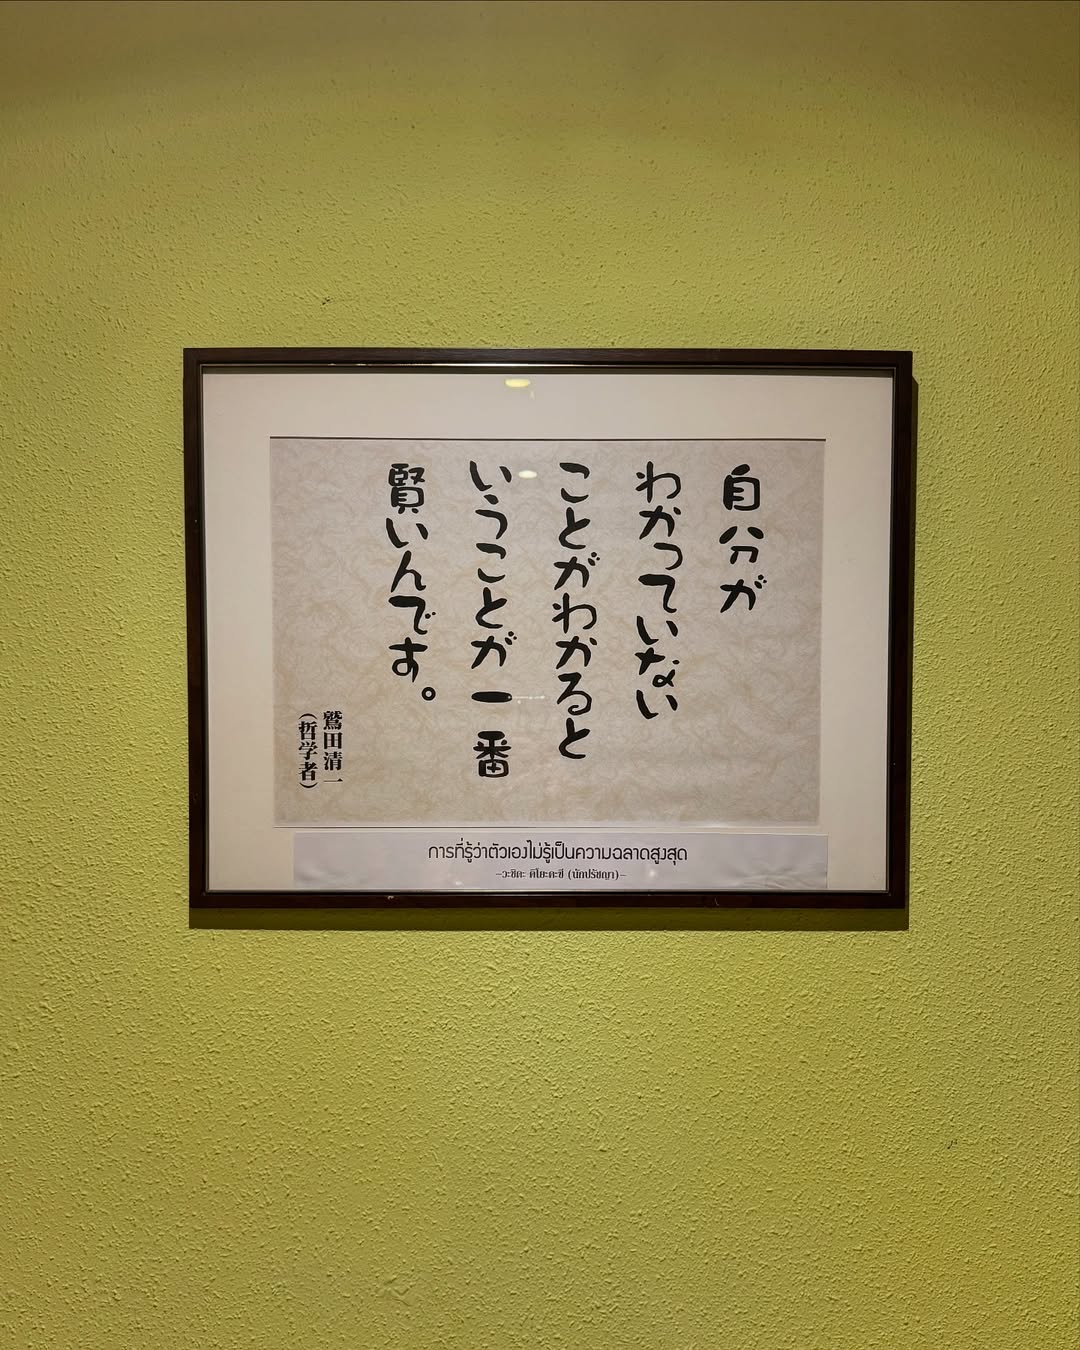 自分が
わかっていない
ことがわかると
いうことが一番
賢いんです。
鷲田清一
(哲学者)
การที่รู้ว่าตัวเองไม่รู้เป็นความฉลาดสูงสุด
-วะชิดะ คิโยะคะซึ (นักปรัชญา)-